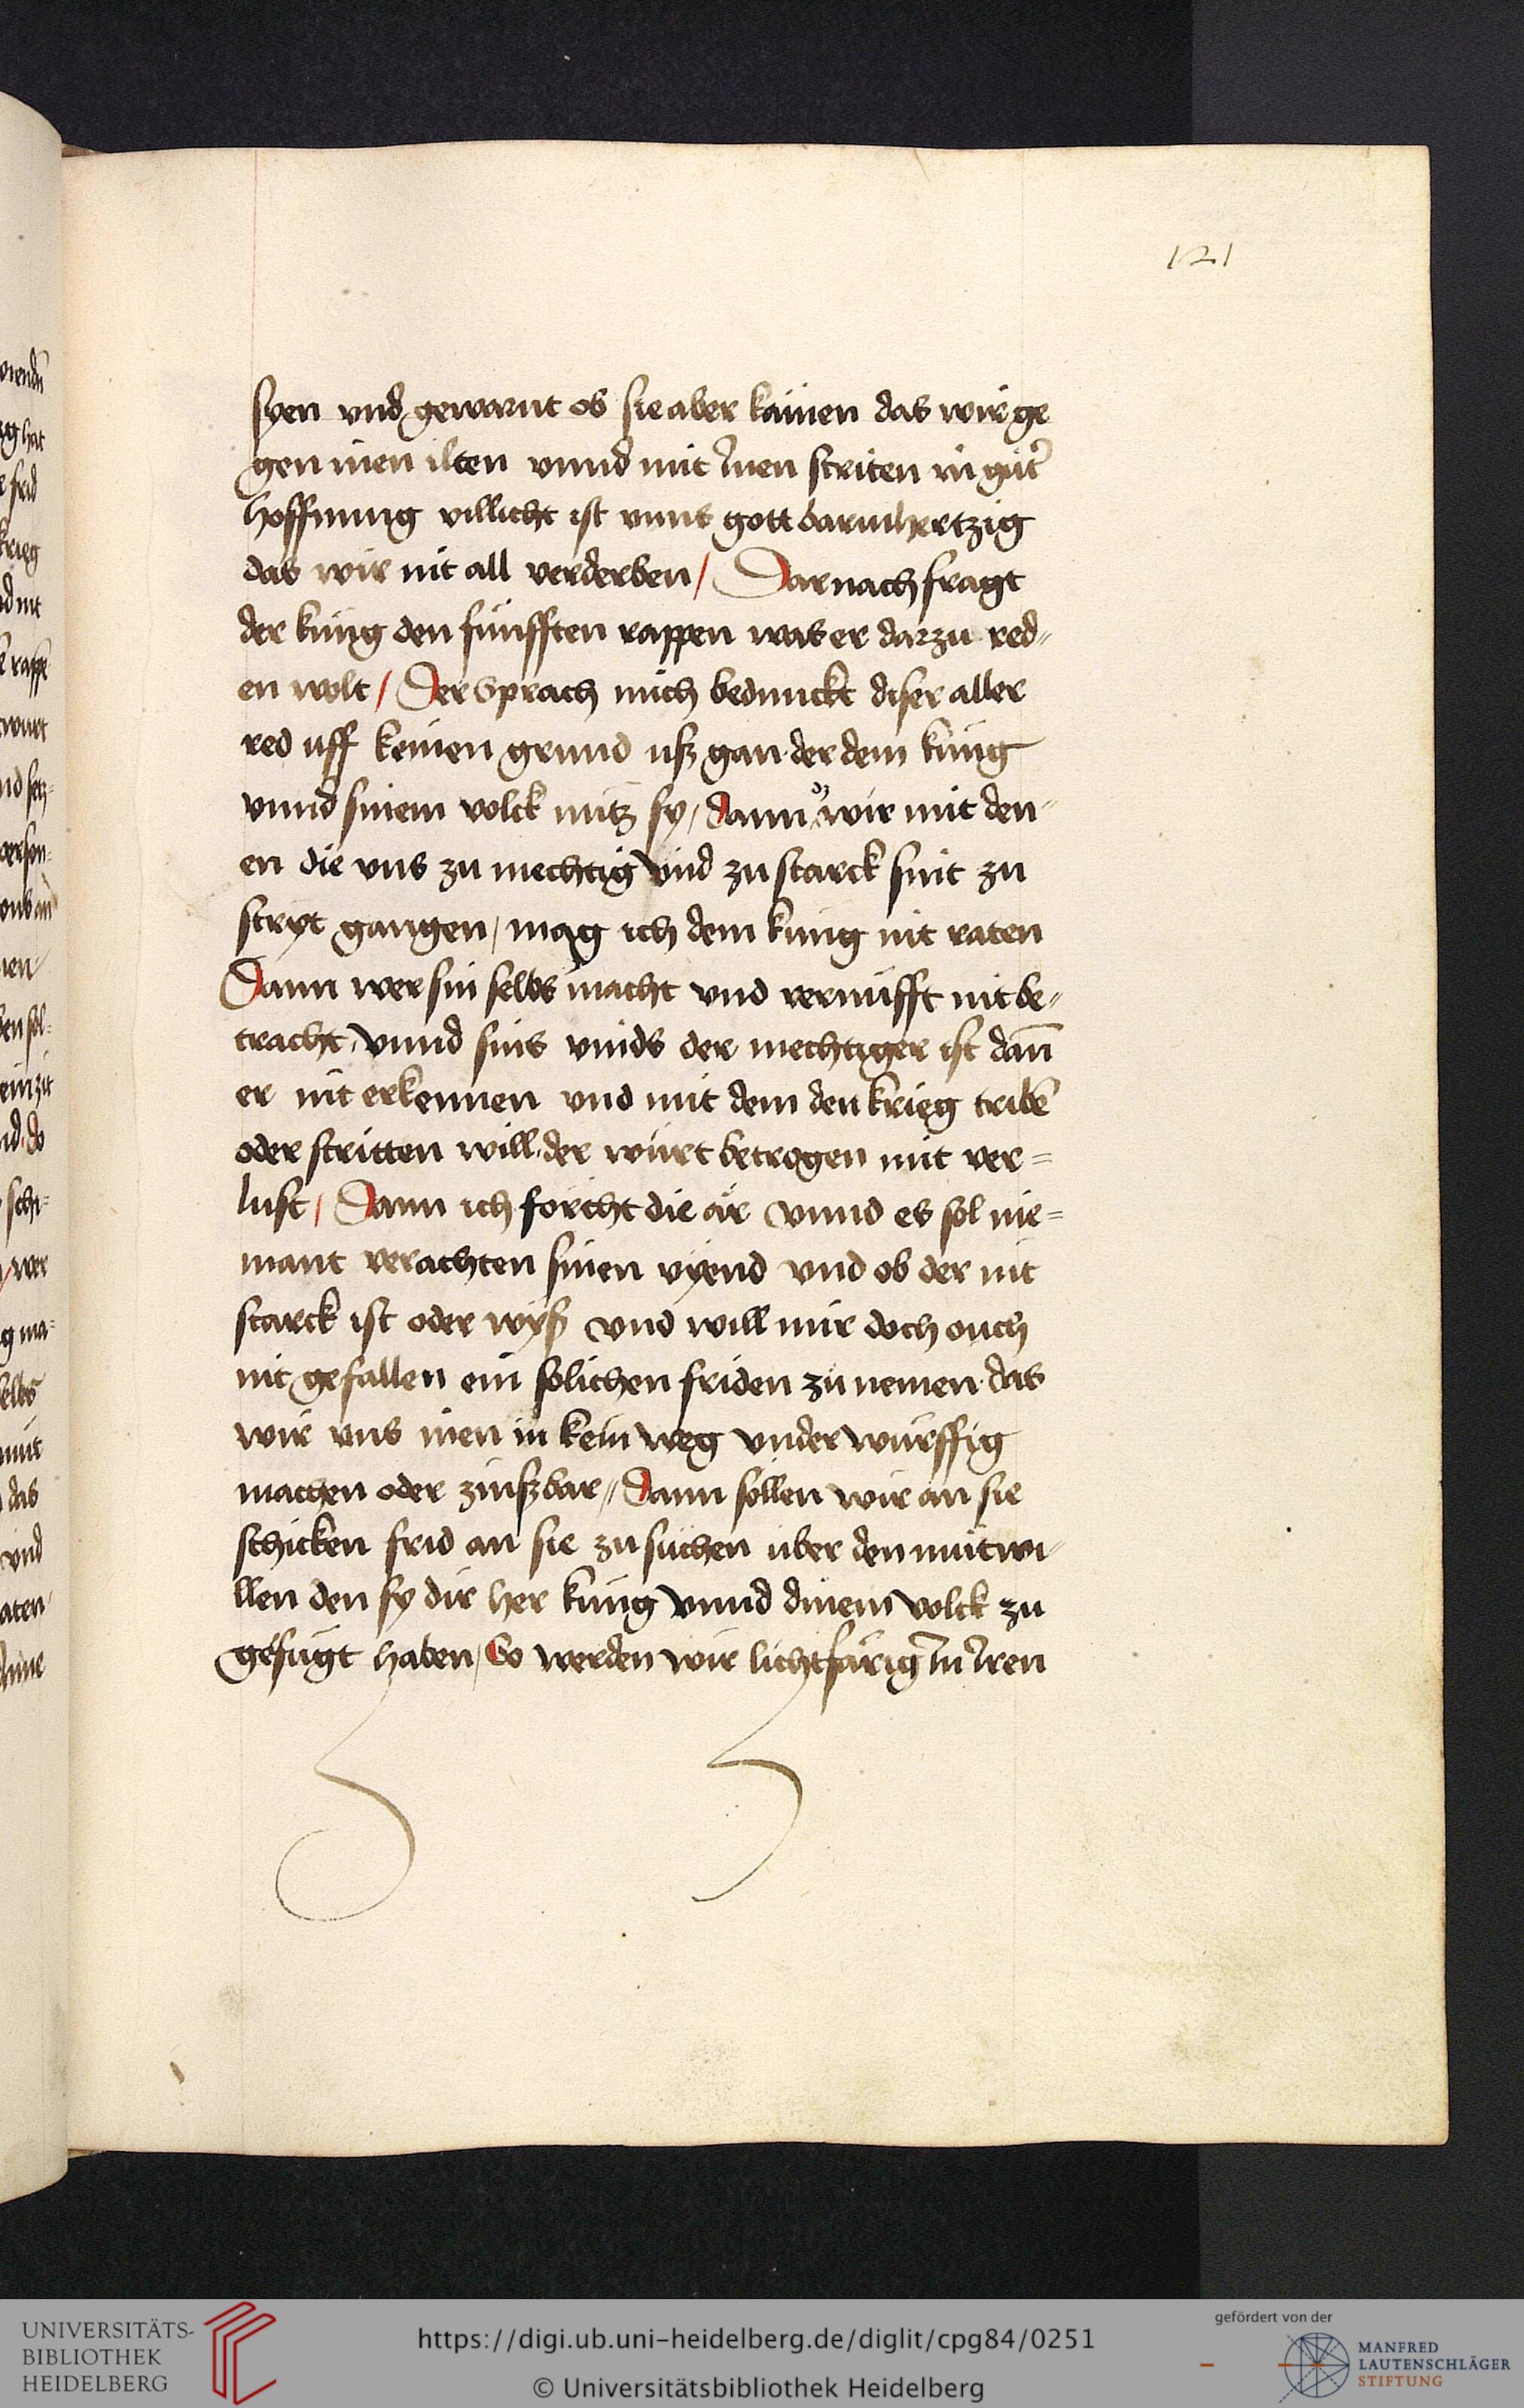 121
syen vnd gewarnt ob sie aber kämen das wir ge
gen inen ilten vnnd mit Inen striten in gůt̄
hoffnung villicht ist vnns gott barmhertzig
das wir nit all verderben / Darnach fragt
der kúng den fúnfften rappen was er darzu red-
en wolt / Der sprach mich bedunckt diser aller
red uff keinen grund usz gan der dem kúng
vnnd sinem volck nútz sy / dann dz wir mit den-
en die vns zu mechtig vnd zu starck sint zu
stryt gangen / mag ich dem kúng nit raten
Dann wer sin selbs macht vnd vernúfft nit be-
tracht / vnnd sins vinds der mechtiger ist dan̄
er nit erkennen vnd mit dem den krieg tribē
oder stritten will der wúrt betrogen mit ver=
lust / Dann ich fórcht die är vnnd es sol nie=
mant verachten sinen vyend vnd ob der nit
starck ist oder wyß vnd will mir doch ouch
nit gefallen ein solichen friden zů nemen das
wir vns inen in kein weg vnderwúrffig
machen oder zinszbar // Dann söllen wir an sie
schicken frid an sie zu sůchen über den můtwi-
llen den sy dir her kúng vnnd dinem volck zu
gefügt haben / So werden wir lichtfärig In Iren
UNIVERSITÄTS-
BIBLIOTHEK
HEIDELBERG
https://digi.ub.uni-heidelberg.de/diglit/cpg84/0251
© Universitätsbibliothek Heidelberg
gefördert von der
MANFRED
LAUTENSCHLÄGER
STIFTUNG